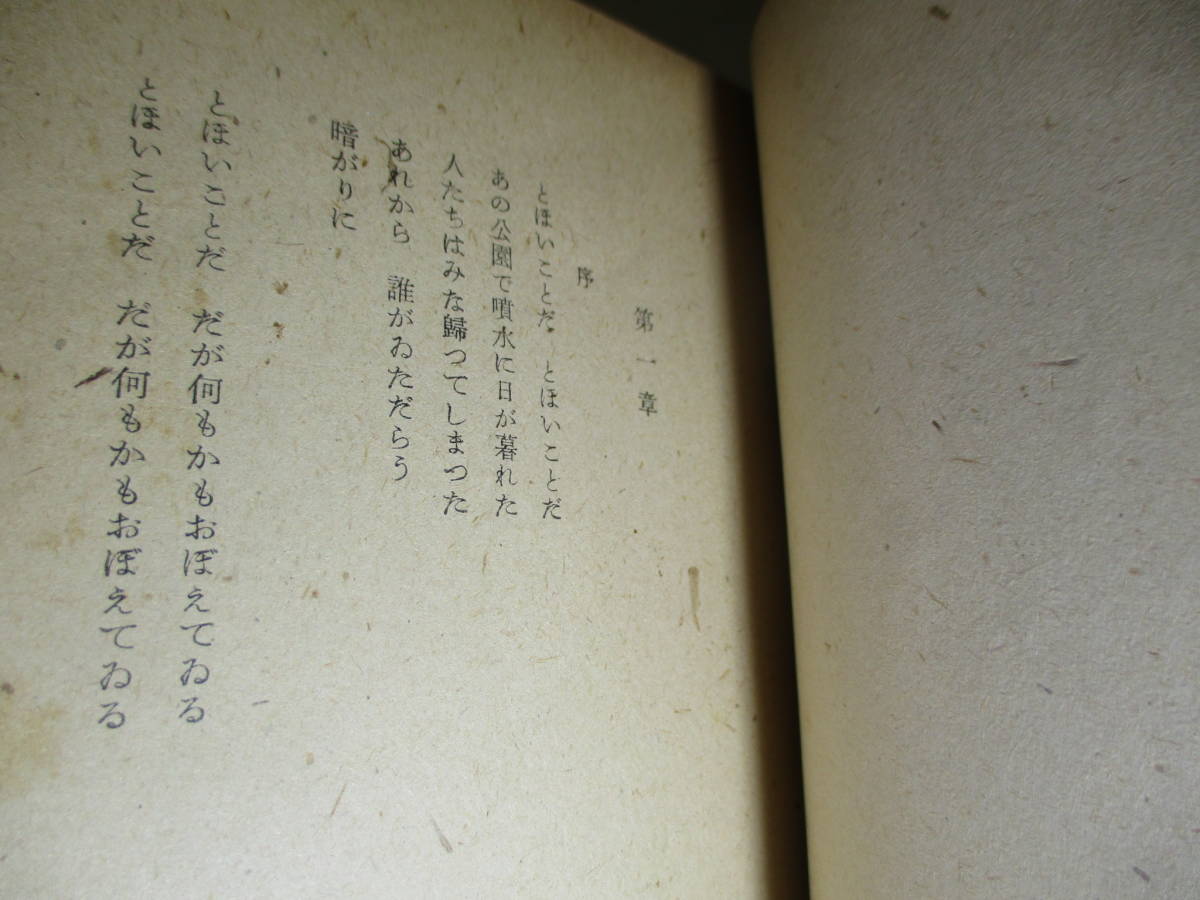 第一章
序
とほいことだ とほいことだ
あの公園で噴水に日が暮れた
人たちはみな歸つてしまつた
あれから 誰がゐただらう
暗がりに
とほいことだ だが何もかもおぼえてゐる
とほいことだ だが何もかもおぼえてゐる